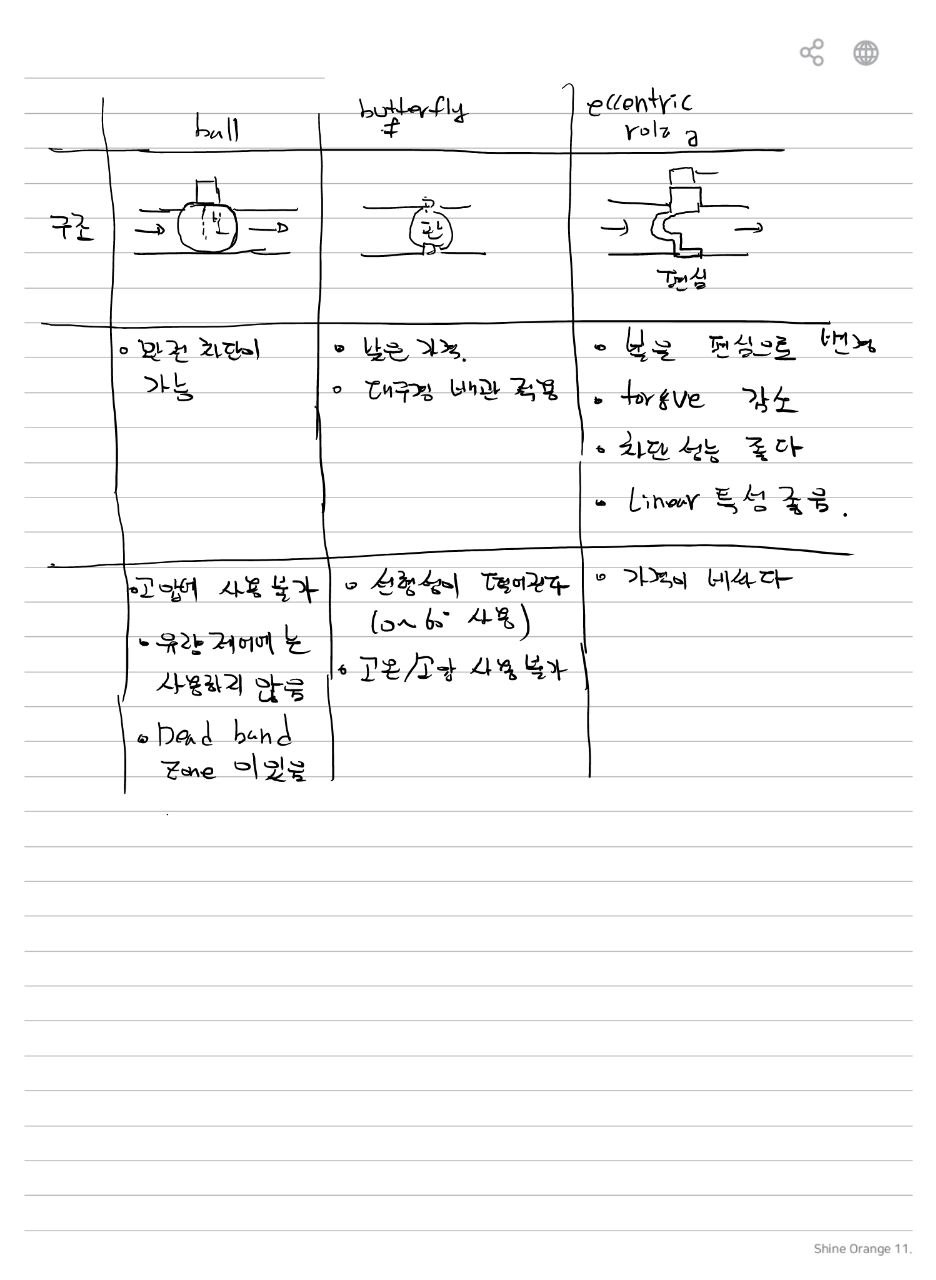 ball
butterfly
eccentric
rota
구조
변
판
편심
완전 차단이
가능
낮은 가격.
대구경 배관 적용
볼을 편심으로 변경
torque 감소
차단 성능 좋다
Linear 특성 좋음.
고압에 사용 불가
유량 제어에는
사용하지 않음
Dead band
Zone 이 있음
선형성이 떨어진다
(0~60° 사용)
고온/고압 사용 불가
가격이 비싸다
Shine Orange 11.